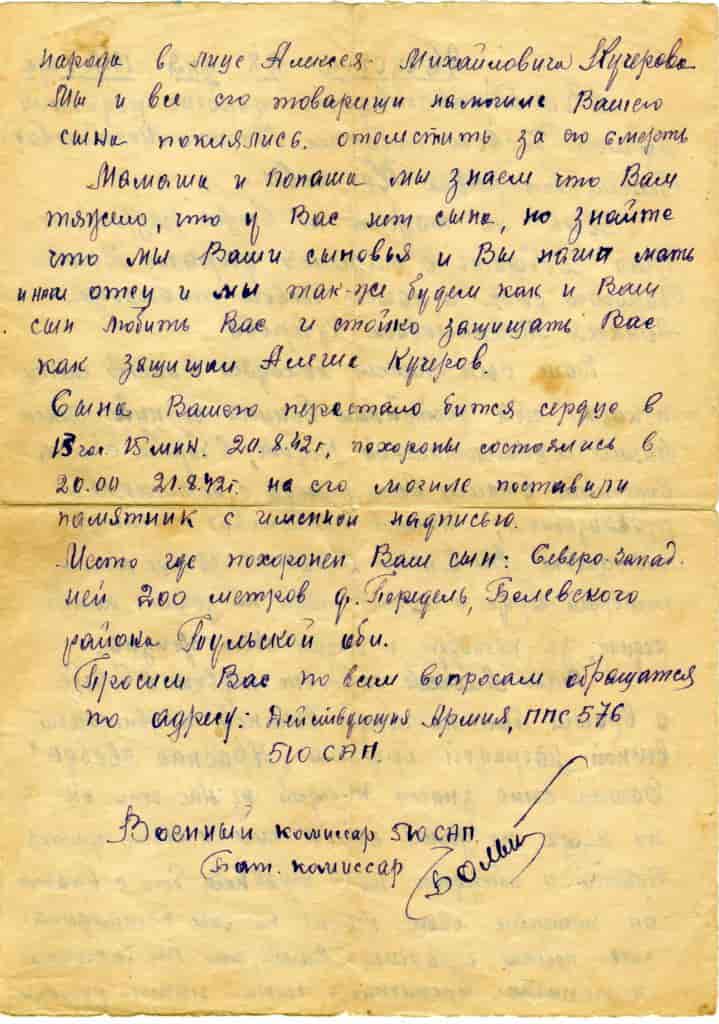 народа в лице Алексея Михайловича Кучерова
Мы и все его товарищи на могиле Вашего
сына поклялись. отомстить за его смерть
Мамаша и Папаша мы знаем что Вам
тяжело, что у Вас нет сына, но знайте
что мы Ваши сыновья и Вы наша мать
и наш отец и мы так-же будем как и Ваш
сын любить Вас и стойко защищать Вас
как защищал Алеша Кучеров.
Сына Вашего перестало бится сердце в
13 час. 15 мин. 20.8.42г, похороны состоялись в
20.00 21.8.42г. на его могиле поставили
памятник с именной надписью.
Место где похоронен Ваш сын: Северо-запад.
ней 200 метров д. Передель, Белевского
района Тульской обл.
Просим Вас по всем вопросам обращатся
по адресу: Действующая Армия, ППС 576
510 САП.
Военный комиссар 510 САП.
Бат. комиссар